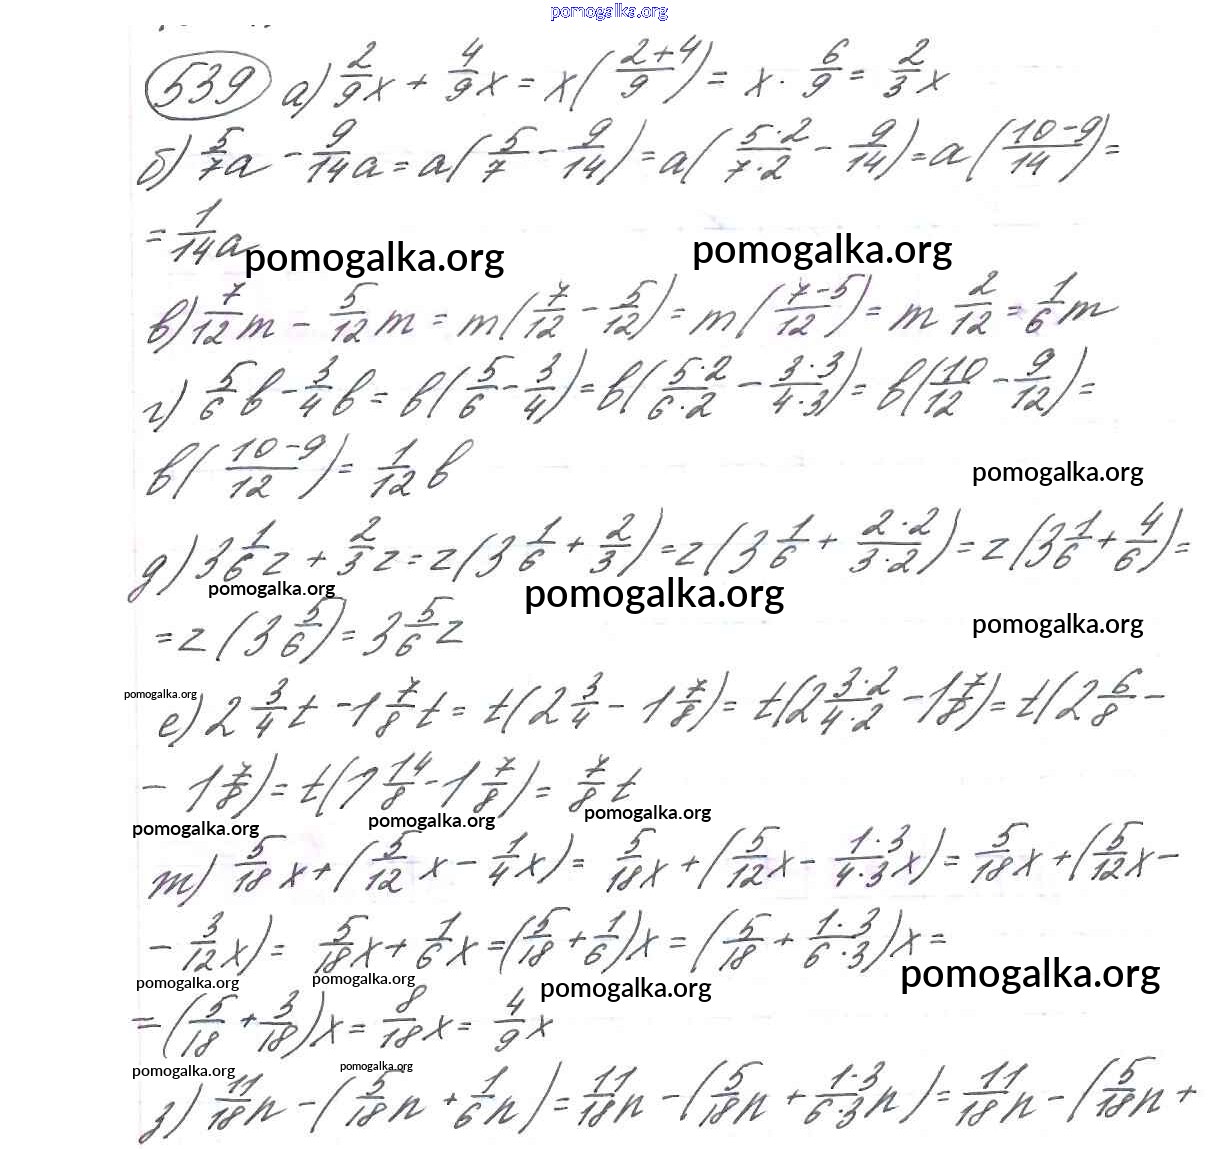 pomogalka.org
539 а) 2/9 x + 4/9 x = x((2+4)/9) = x · 6/9 = 2/3 x
б) 5/7 a - 9/14 a = a(5/7 - 9/14) = a((5·2)/(7·2) - 9/14) = a((10-9)/14) =
= 1/14 a
pomogalka.org pomogalka.org
в) 7/12 m - 5/12 m = m(7/12 - 5/12) = m((7-5)/12) = m 2/12 = 1/6 m
г) 5/6 b - 3/4 b = b(5/6 - 3/4) = b((5·2)/(6·2) - (3·3)/(4·3)) = b(10/12 - 9/12) =
b((10-9)/12) = 1/12 b
pomogalka.org
д) 3 1/6 z + 2/3 z = z(3 1/6 + 2/3) = z(3 1/6 + (2·2)/(3·2)) = z(3 1/6 + 4/6) =
pomogalka.org pomogalka.org
= z(3 5/6) = 3 5/6 z
pomogalka.org
pomogalka.org
е) 2 3/4 t - 1 7/8 t = t(2 3/4 - 1 7/8) = t(2 (3·2)/(4·2) - 1 7/8) = t(2 6/8 -
- 1 7/8) = t(1 14/8 - 1 7/8) = 7/8 t
pomogalka.org pomogalka.org pomogalka.org
m) 5/18 x + (5/12 x - 1/4 x) = 5/18 x + (5/12 x - (1·3)/(4·3) x) = 5/18 x + (5/12 x -
- 3/12 x) = 5/18 x + 1/6 x = (5/18 + 1/6) x = (5/18 + (1·3)/(6·3)) x =
pomogalka.org pomogalka.org pomogalka.org pomogalka.org
= (5/18 + 3/18) x = 8/18 x = 4/9 x
pomogalka.org pomogalka.org
з) 11/18 n - (5/18 n + 1/6 n) = 11/18 n - (5/18 n + (1·3)/(6·3) n) = 11/18 n - (5/18 n +